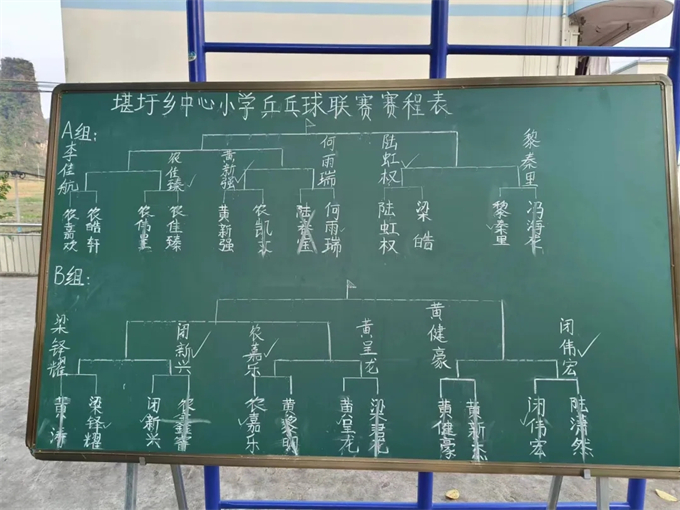 堪圩乡中心小学乒乓球联赛赛程表
A组:
李佳航 农佳臻 黄新强 何雨瑞 陆虹权 黎秦里
农嘉欢 农皓轩 农伟星 农佳臻 黄新强 农凯 陆 何雨瑞 陆虹权 梁皓 黎秦里 冯海
B组:
梁铎耀 闭新兴 农嘉乐 黄呈龙 黄健豪 闭伟宏
黄涛 梁铎耀 闭新兴 农鑫 农嘉乐 黄黎明 黄呈龙 梁君龙 黄健豪 黄新杰 闭伟宏 陆潇然